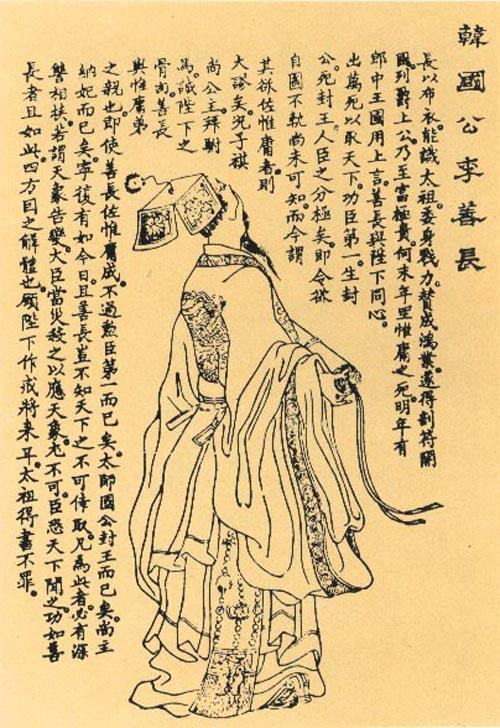 韓國公李善長
長以布衣。能識太祖。委身戮力。贊成鴻業。遂得剖符開
國。列爵上公。乃至富極貴。何末年罣惟庸之死。明年有
郎中王國用上言。善長與陛下同心。
出萬死以取天下。功臣第一。生封
公。死封王。人臣之分極矣。即令欲
自圖不軌。尚未可知。而今謂
其欲佐惟庸者。則
大謬矣。況子祺
尚公主。拜駙
馬。誠陛下之
骨肉。善長
與惟庸第
之親也。即使善長佐惟庸成。不過勲臣第一而已矣。太師國公封王而已矣。尚主
納妃而已矣。寧復有如今日。且善長豈不知天下之不可倖取。凡為此者。必有深
讐相挾。若謂天象告變。大臣當災。殺之以應天象。尤不可。臣恐天下聞之。功如善
長者且如此。四方因之解體也。願陛下作戒將來耳。太祖得書不罪。